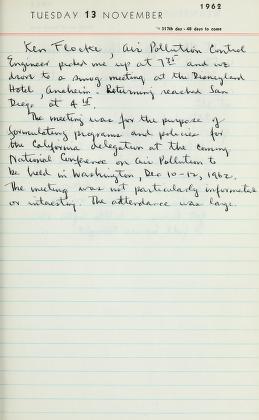 1962
TUESDAY 13 NOVEMBER
317th day - 48 days to come
Ken Flocke, Air Pollution Control
Engineer picked me up at 7 and we
drove to a smog meeting at the Disneyland
Hotel, Anaheim. Returning reached San
Diego at 4
The meeting was for the purpose of
formulating programs and policies for
the California delegation at the coming
National Conference on Air Pollution to
be held in Washington, Dec 10-12, 1962.
The meeting was not particularly informative
or interesting. The attendance was large.